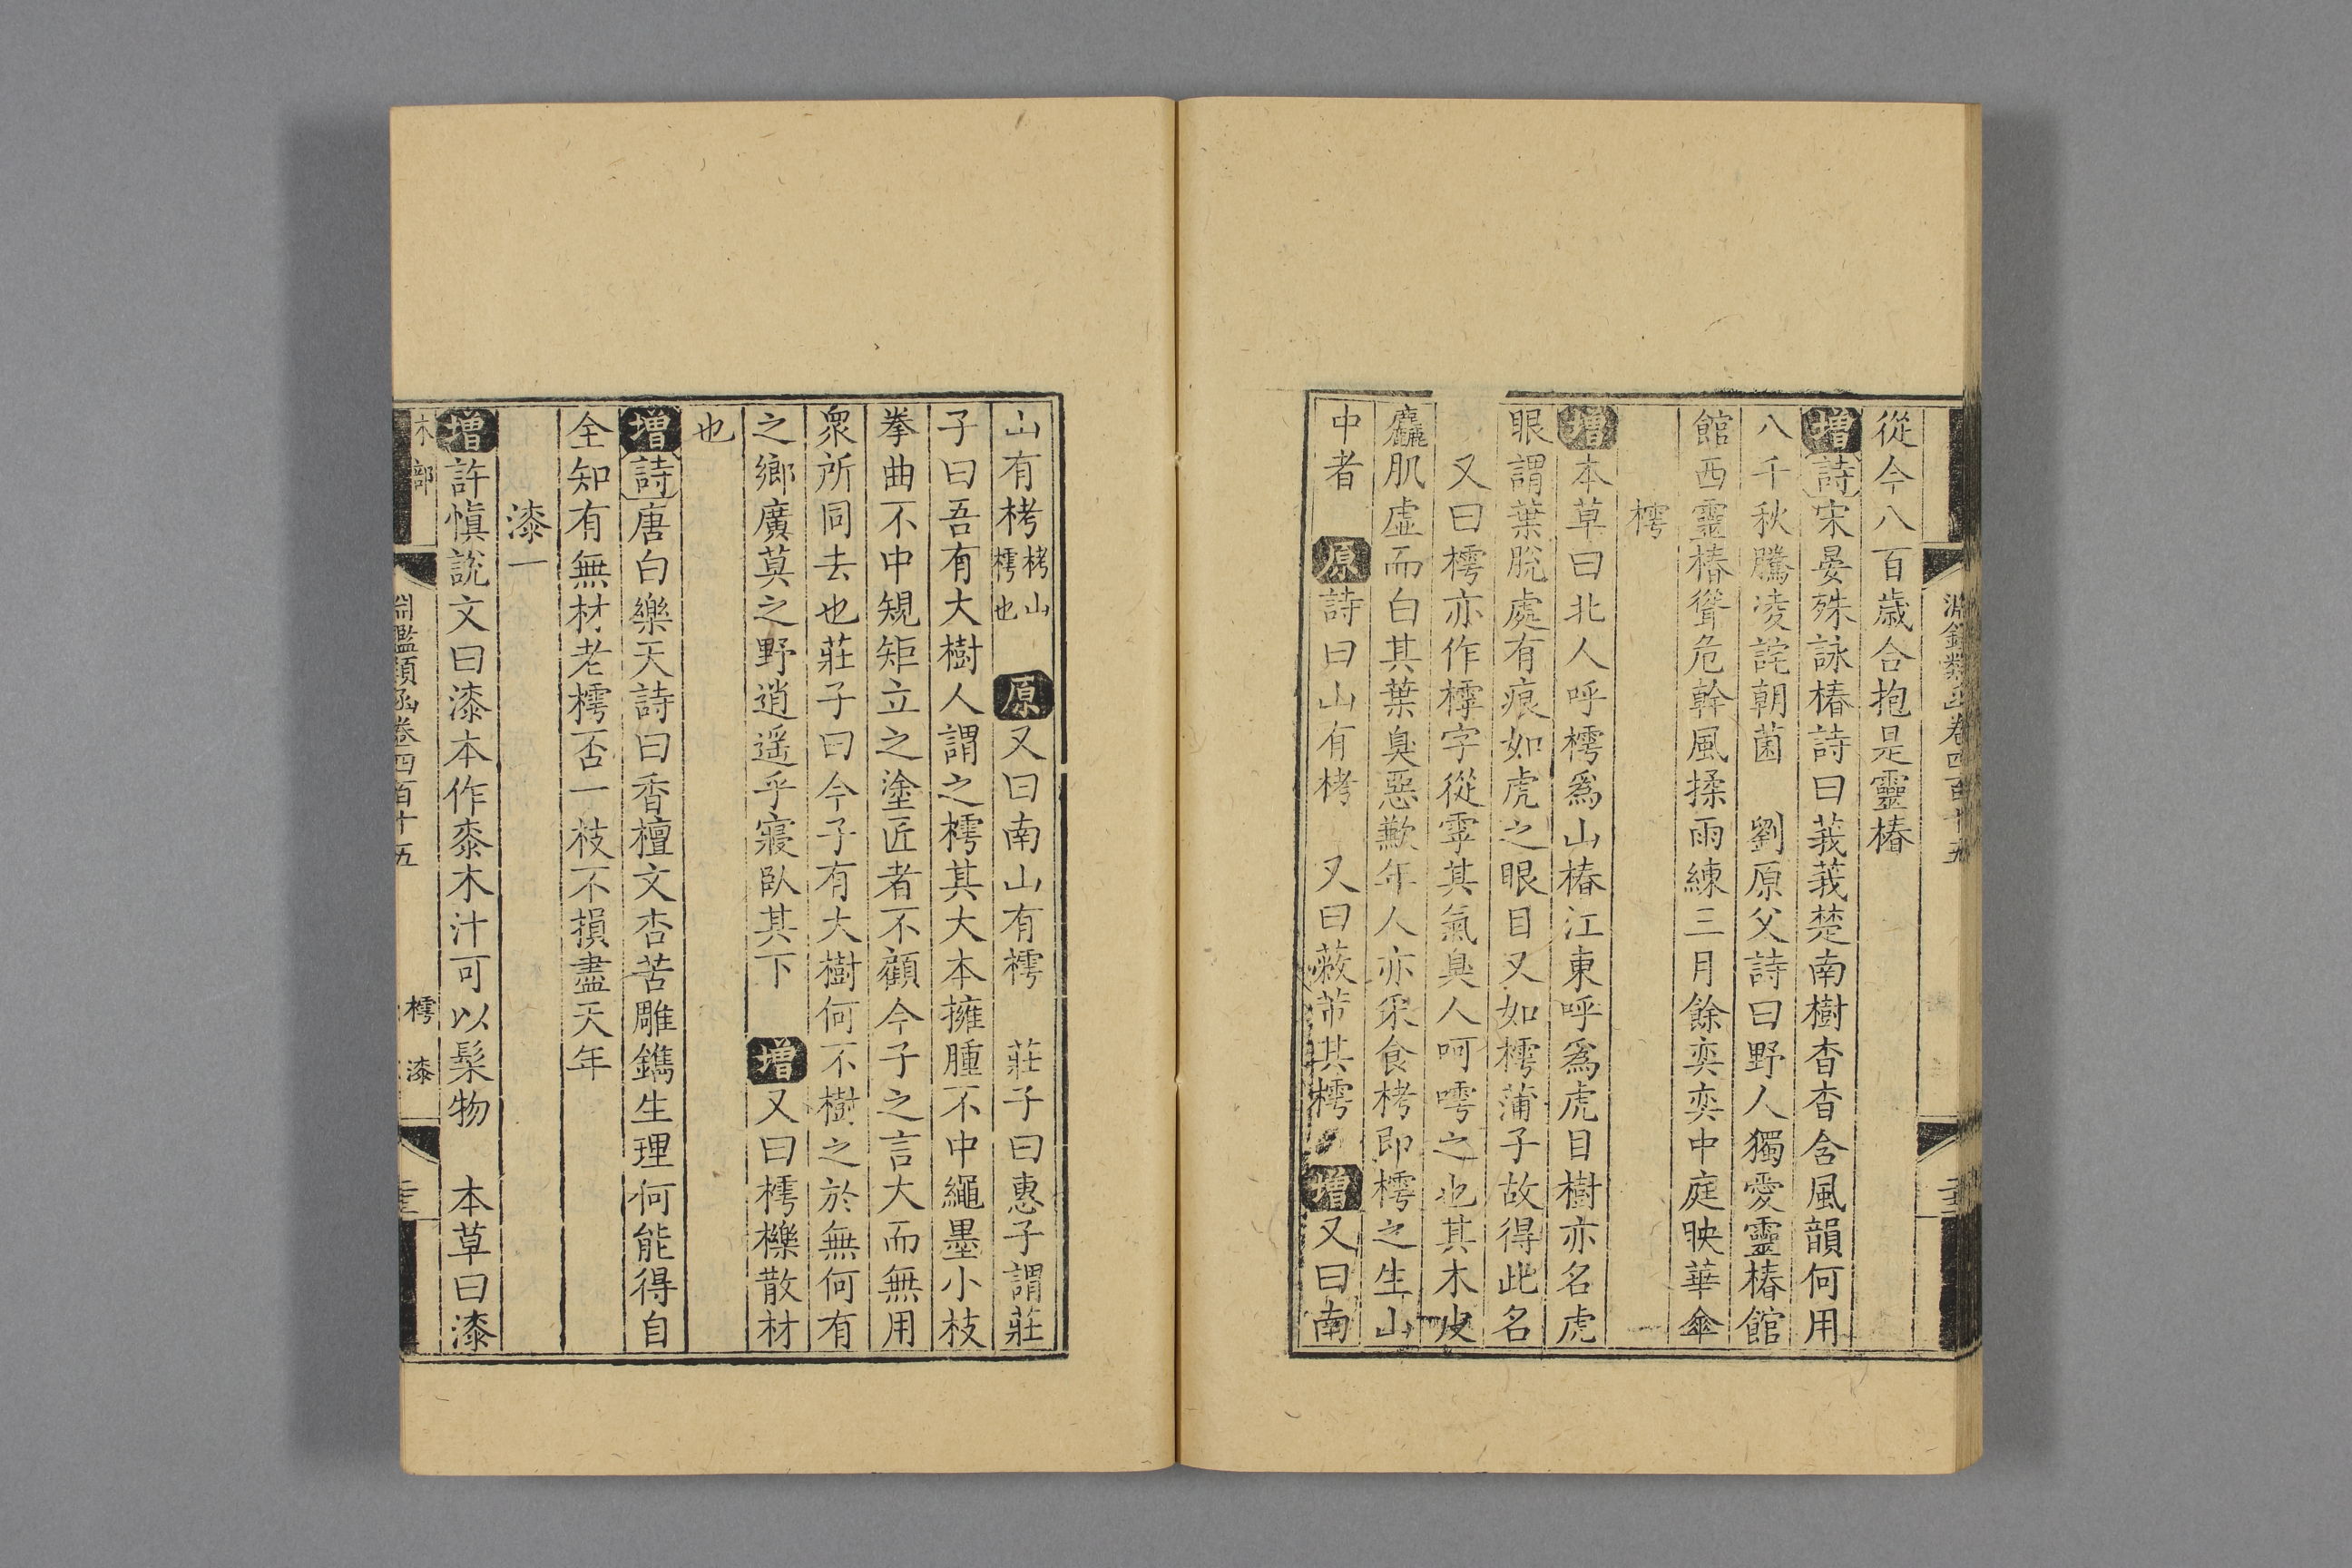 從今八百歲合抱是靈椿
增詩宋晏殊詠椿詩曰莪莪楚南樹杳杳含風韻何用
八千秋騰凌詫朝菌　劉原父詩曰野人獨愛靈椿館
館西靈椿聳危幹風揉雨練三月餘奕奕中庭映華傘
樗
增本草曰北人呼樗爲山椿江東呼爲虎目樹亦名虎
眼謂葉脫處有痕如虎之眼目又如樗蒲子故得此名
又曰樗亦作㯉字從雩其氣臭人呵嘑之也其木皮
麤肌虛而白其葉臭惡歉年人亦采食栲即樗之生山
中者　原詩曰山有栲　又曰蔽芾其樗　增又曰南
山有栲栲山樗也　原又曰南山有樗　莊子曰惠子謂莊
子曰吾有大樹人謂之樗其大本擁腫不中繩墨小枝
拳曲不中規矩立之塗匠者不顧今子之言大而無用
衆所同去也莊子曰今子有大樹何不樹之於無何有
之鄉廣莫之野逍遥乎寢臥其下　增又曰樗櫟散材
也
增詩唐白樂天詩曰香檀文杏苦雕鐫生理何能得自
全知有無材老樗否一枝不損盡天年
漆一
增許慎說文曰漆本作桼木汁可以髤物　本草曰漆
木部
淵鑑類函卷四百十五
樗　漆